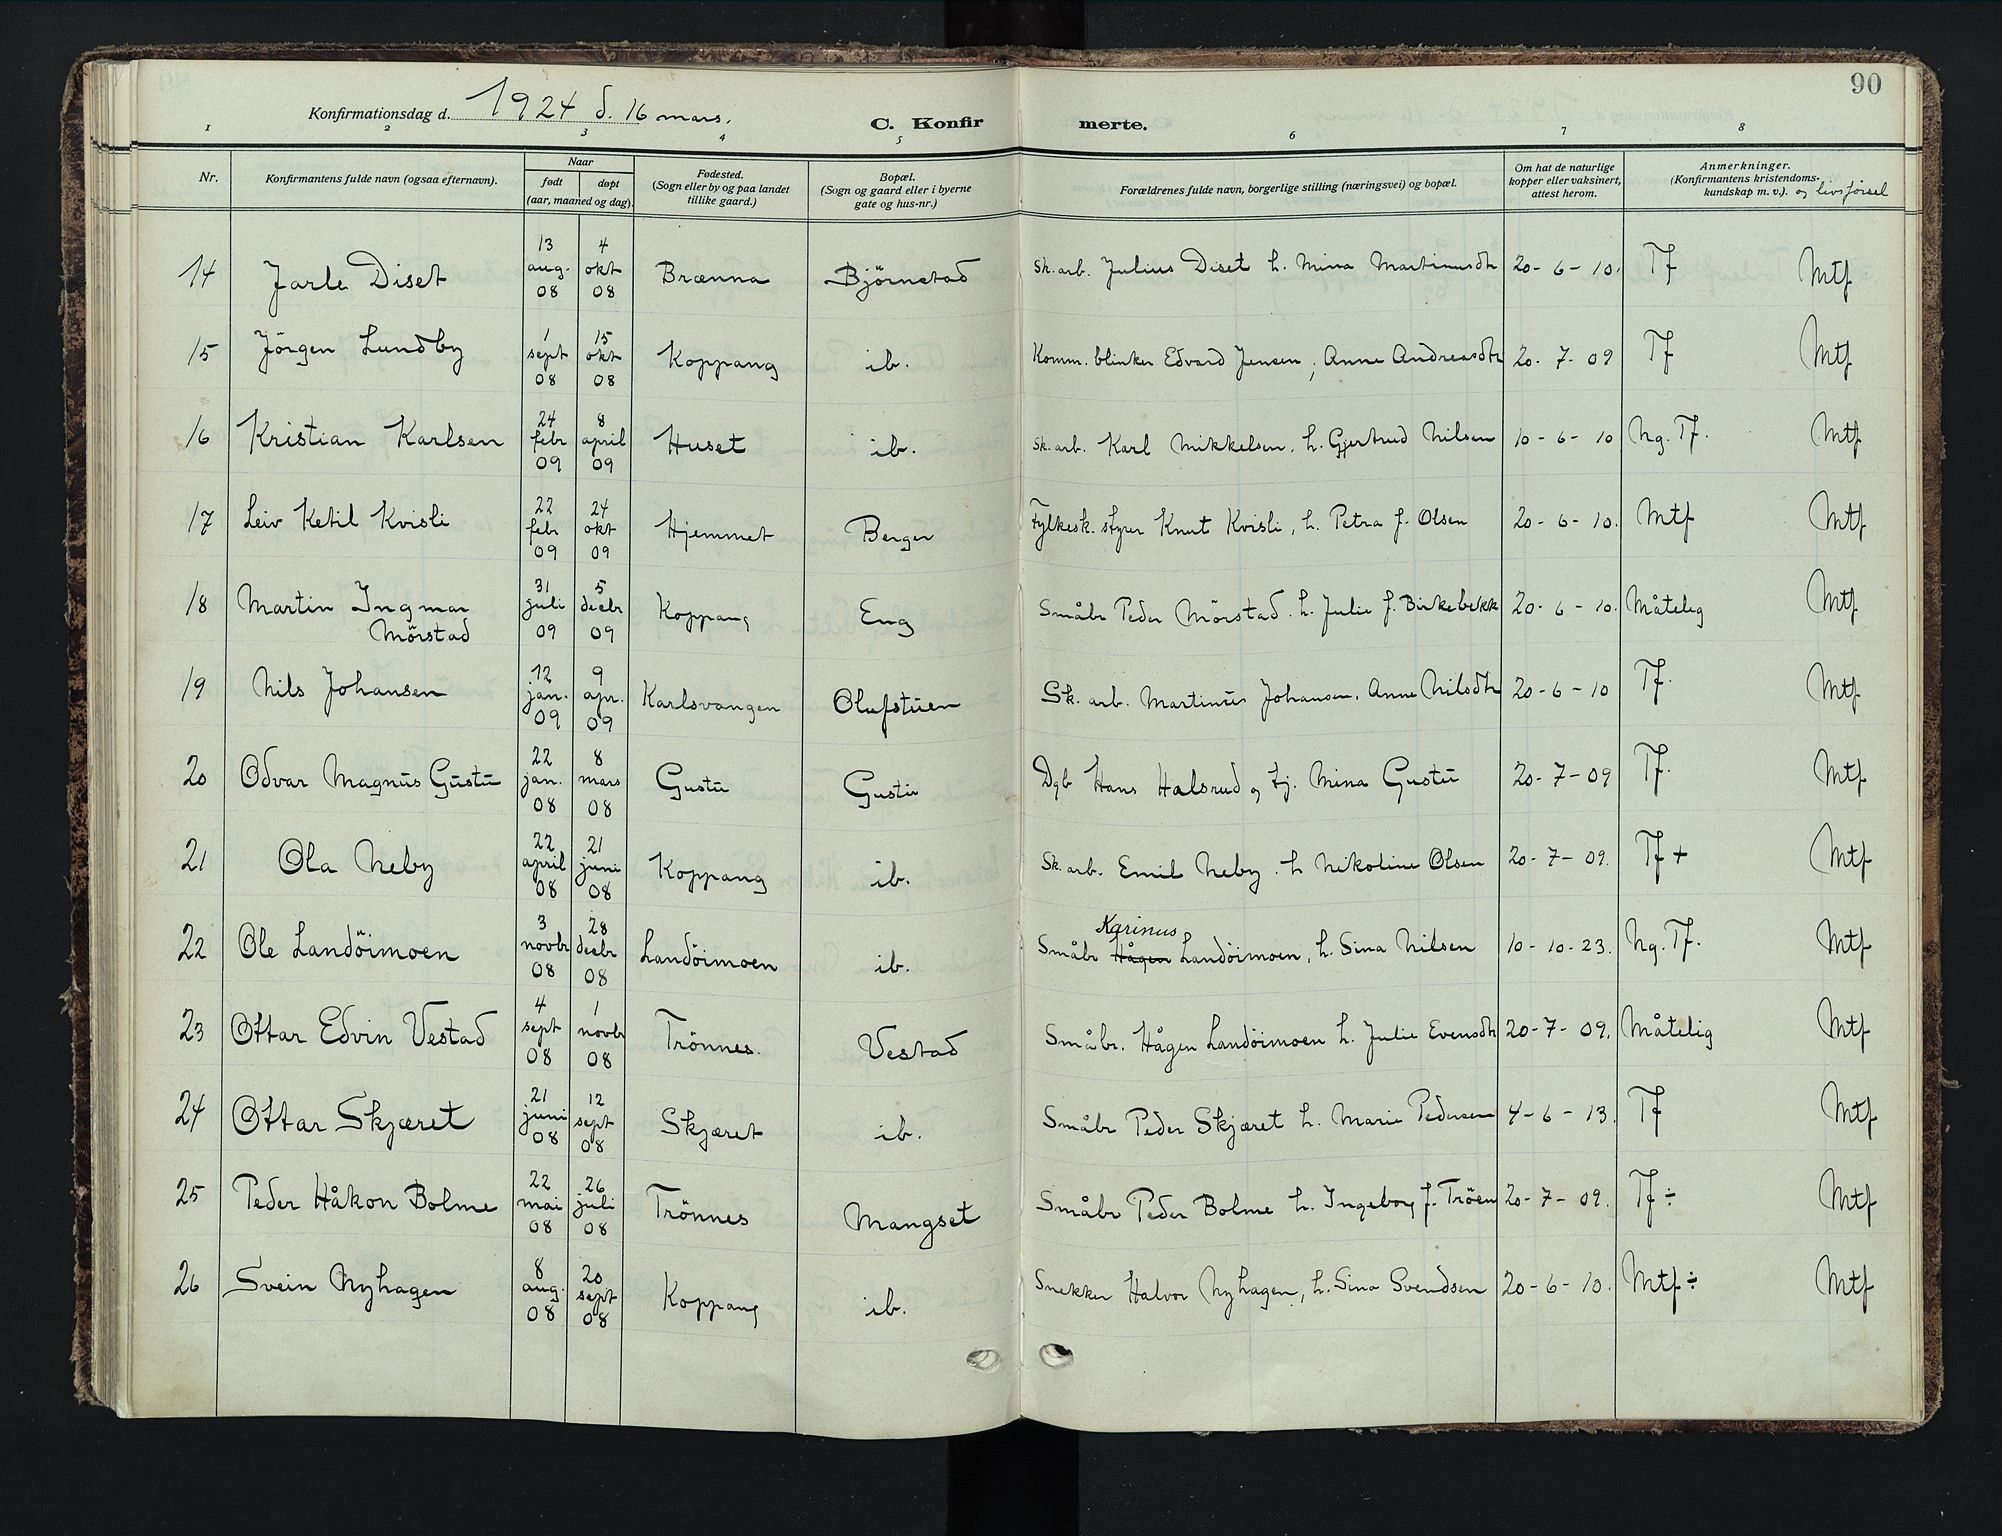 90
Konfirmationsdag d. 1924 d. 16 mars.
C. Konfirmerte.
1 2 3 4 5 6 7 8
Nr. | Konfirmantens fulde navn (ogsaa efternavn). | Naar født døpt (aar, maaned og dag). | Fødested. (Sogn eller by og paa landet tillike gaard.) | Bopæl. (Sogn og gaard eller i byerne gate og hus-nr.) | Forældrenes fulde navn, borgerlige stilling (næringsvei) og bopæl. | Om hat de naturlige kopper eller vaksinert, attest herom. | Anmerkninger. (Konfirmantens kristendoms-kundskap m. v.). og livsførsel
14 | Jarle Diset | 13 aug. 08 | 4 okt 08 | Brænna | Bjørnstad | Sk. arb. Julius Diset h. Mina Martinusdtr | 20-6-10. | Tf | Mtf
15 | Jörgen Lundby | 1 sept 08 | 15 okt 08 | Koppang | ib. | Komm. blinker Edvard Jensen, Anne Andreasdtr | 20-7-09 | Tf | Mtf
16 | Kristian Karlsen | 24 febr 09 | 8 april 09 | Huset | ib. | Sk. arb. Karl Mikkelsen, h. Gjertrud Nilsen | 10-6-10 | Ng. Tf. | Mtf
17 | Leiv Ketil Kvisli | 22 febr 09 | 24 okt 09 | Hjemmet | Berger | Fylkesk. styrer Knut Kvisli, h. Petra f. Olsen | 20-6-10. | Mtf | Mtf
18 | Martin Ingmar Mörstad | 31 juli 09 | 5 decbr 09 | Koppang | Eng | Småbr Peder Mörstad. h. Julie f. Birkebekk | 20-6-10. | Måtelig | Mtf
19 | Nils Johansen | 12 jan. 09 | 9 apr. 09 | Karlsvangen | Olufstuen | Sk. arb. Martinus Johansen, Anne Nilsdtr | 20-6-10 | Tf. | Mtf
20 | Odvar Magnus Gustu | 22 jan. 08 | 8 mars 08 | Gustu | Gustu | Dgb Hans Halsrud og tj. Mina Gustu | 20-7-09 | Tf. | Mtf
21 | Ola Neby | 22 april 08 | 21 juni 08 | Koppang | ib. | Sk. arb. Emil Neby. h Nikoline Olsen | 20-7-09. | Tf + | Mtf
22 | Ole Landöimoen | 3 novbr 08 | 28 decbr 08 | Landöimoen | ib. | Småbr Hågen Karinus Landöimoen, h. Sina Nilsen | 10-10-23. | Ng. Tf. | Mtf
23 | Ottar Edvin Vestad | 4 sept 08 | 1 novbr 08 | Trönnes. | Vestad | Småbr. Hågen Landöimoen h. Julie Evensdtr | 20-7-09. | Måtelig | Mtf
24 | Ottar Skjæret | 21 juni 08 | 12 sept 08 | Skjæret | ib. | Småbr Peder Skjæret h. Marie Pedersen | 4-6-13. | Tf | Mtf
25 | Peder Håkon Bolme | 22 mai 08 | 26 juli 08 | Trönnes | Mangset | Småbr Peder Bolme h. Ingeborg f. Tröen | 20-7-09. | Tf ÷ | Mtf
26 | Svein Nyhagen | 8 aug. 08 | 20 sept 08 | Koppang | ib. | Snekker Halvor Nyhagen, h. Sina Svendsen | 20-6-10. | Mtf ÷ | Mtf